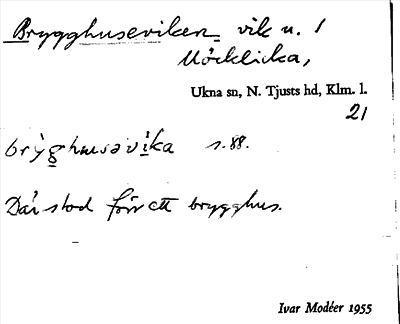 Brygghuseviken vik u. 1
Mörklicka,
Ukna sn, N. Tjusts hd, Klm. l.
21
brỳghusəvìka s.88.
Där stod förr ett brygghus.
Ivar Modéer 1955